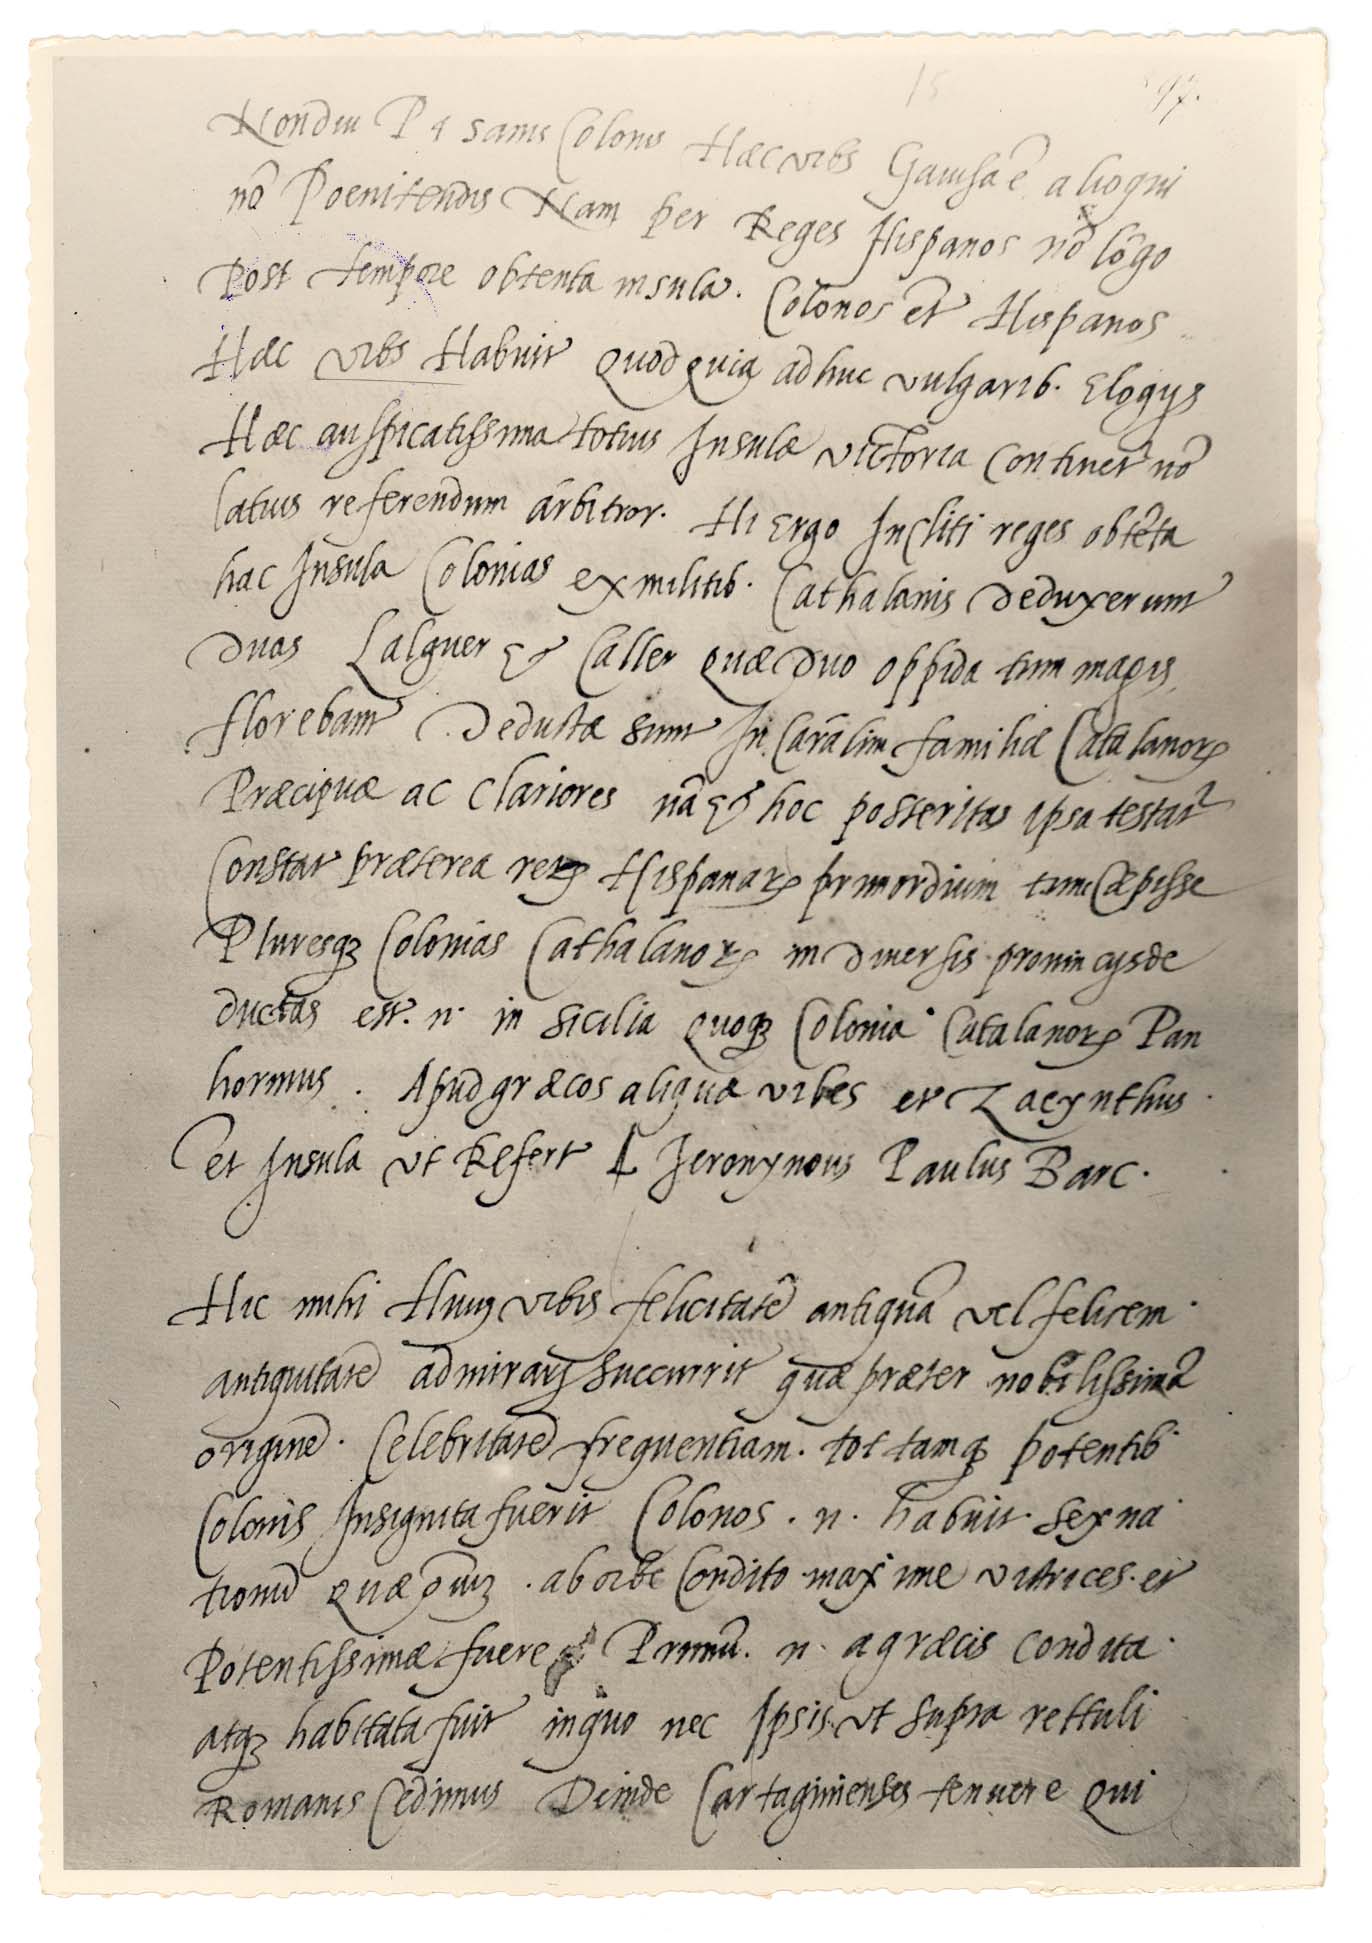 15 97.
Nondiu Pisanis Colonis Hæc vrbs Gauisa ē alioqui
nō Poenitendis Nam per Reges Hispanos nō lōgo
Post tempore obtenta insula. Colonos et Hispanos
Hæc vrbs Habuit Quod Quia adhuc vulgarib. Elogijs
Hæc auspicatissima totius Insulæ victoria continet nō
latius referendum arbitror. Hi Ergo Incliti reges obtēta
hac Insula Colonias ex militib. Cathalanis Deduxerunt
Duas Lalguer & Caller Quæ Duo oppida tum magis
florebant Deductæ sunt In Caralim familiæ Catalanoꝝ
Præcipuæ ac clariores nā & hoc posteritas ipsa testat
Constat præterea reꝝ Hispanaꝝ primordium tunc Cæpisse
Pluresqꝫ Colonias Cathalanoꝝ in Diuersis prouincijs de
ductas est. n. in sicilia Quoqꝫ Colonia Catalanoꝝ Pan
hormus. Apud græcos aliquæ vrbes et Zacynthus
et Insula vt Refert Ieronymus Paulus Barc.
Hic mihi Huiꝫ vrbis felicitatē antiquā vel felicem
antiquitatē admirari succurrit quæ præter nobilissimā
originē. Celebritatē frequentiam. tot tamqꝫ potentib.
Colonis Insignita fuerit Colonos. n. habuit sex na
tionū Quæ oīuꝫ ab orbe Condito maxime victrices et
Potentissimæ fuere Primū. n. a græcis condita
atqꝫ habitata fuit in quo nec Ipsis vt supra rettuli
Romanis Cedimus Deinde Cartaginienses tenuere Qui